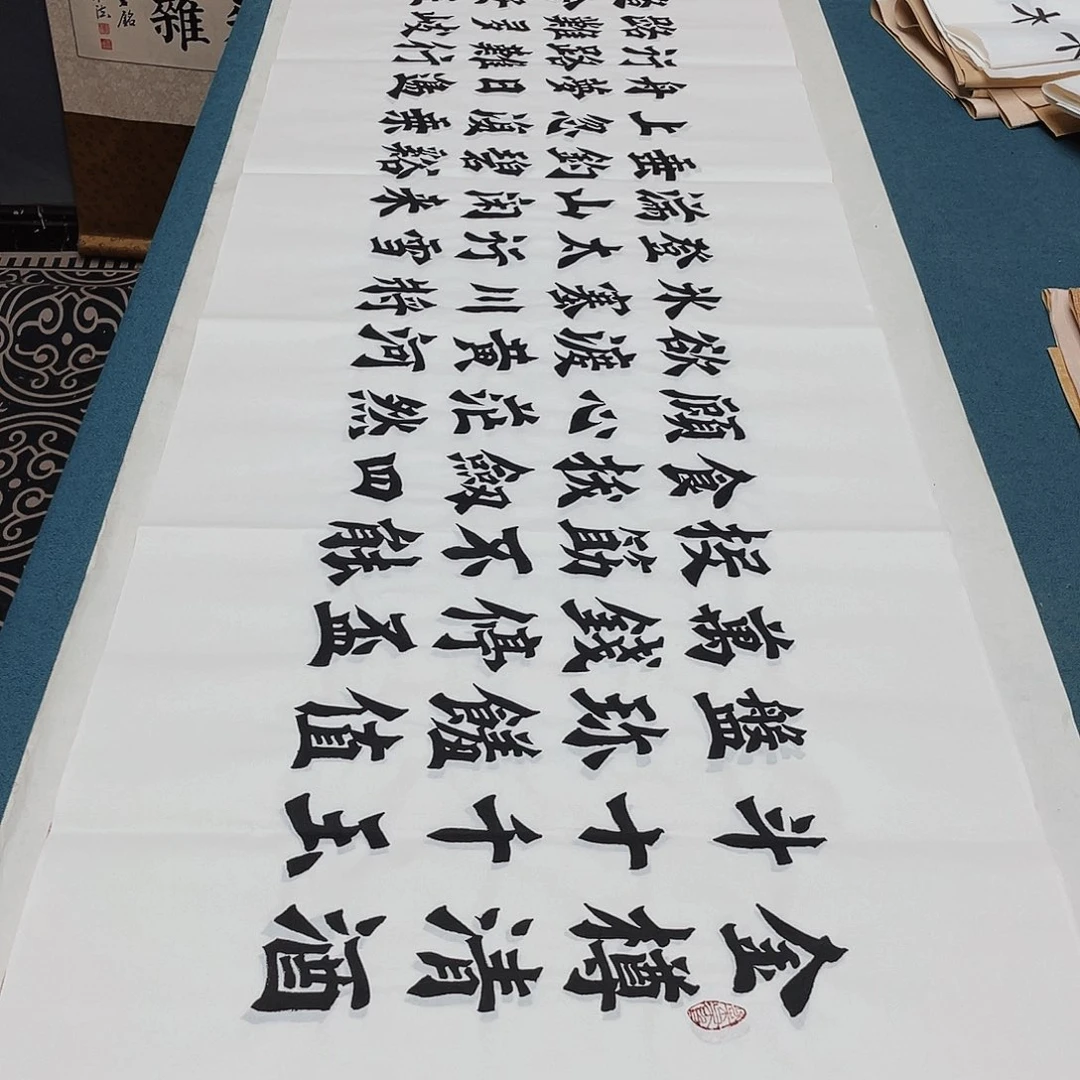 金樽清酒
斗十千玉
盤珍饈值
萬錢停盃
投筯不能
食拔劒四
顧心茫然
欲渡黄河
氷塞川将
登太行雪
滿山閑来
垂釣碧谿
上忽復乘
舟夢日邊
行路難行
路難多岐